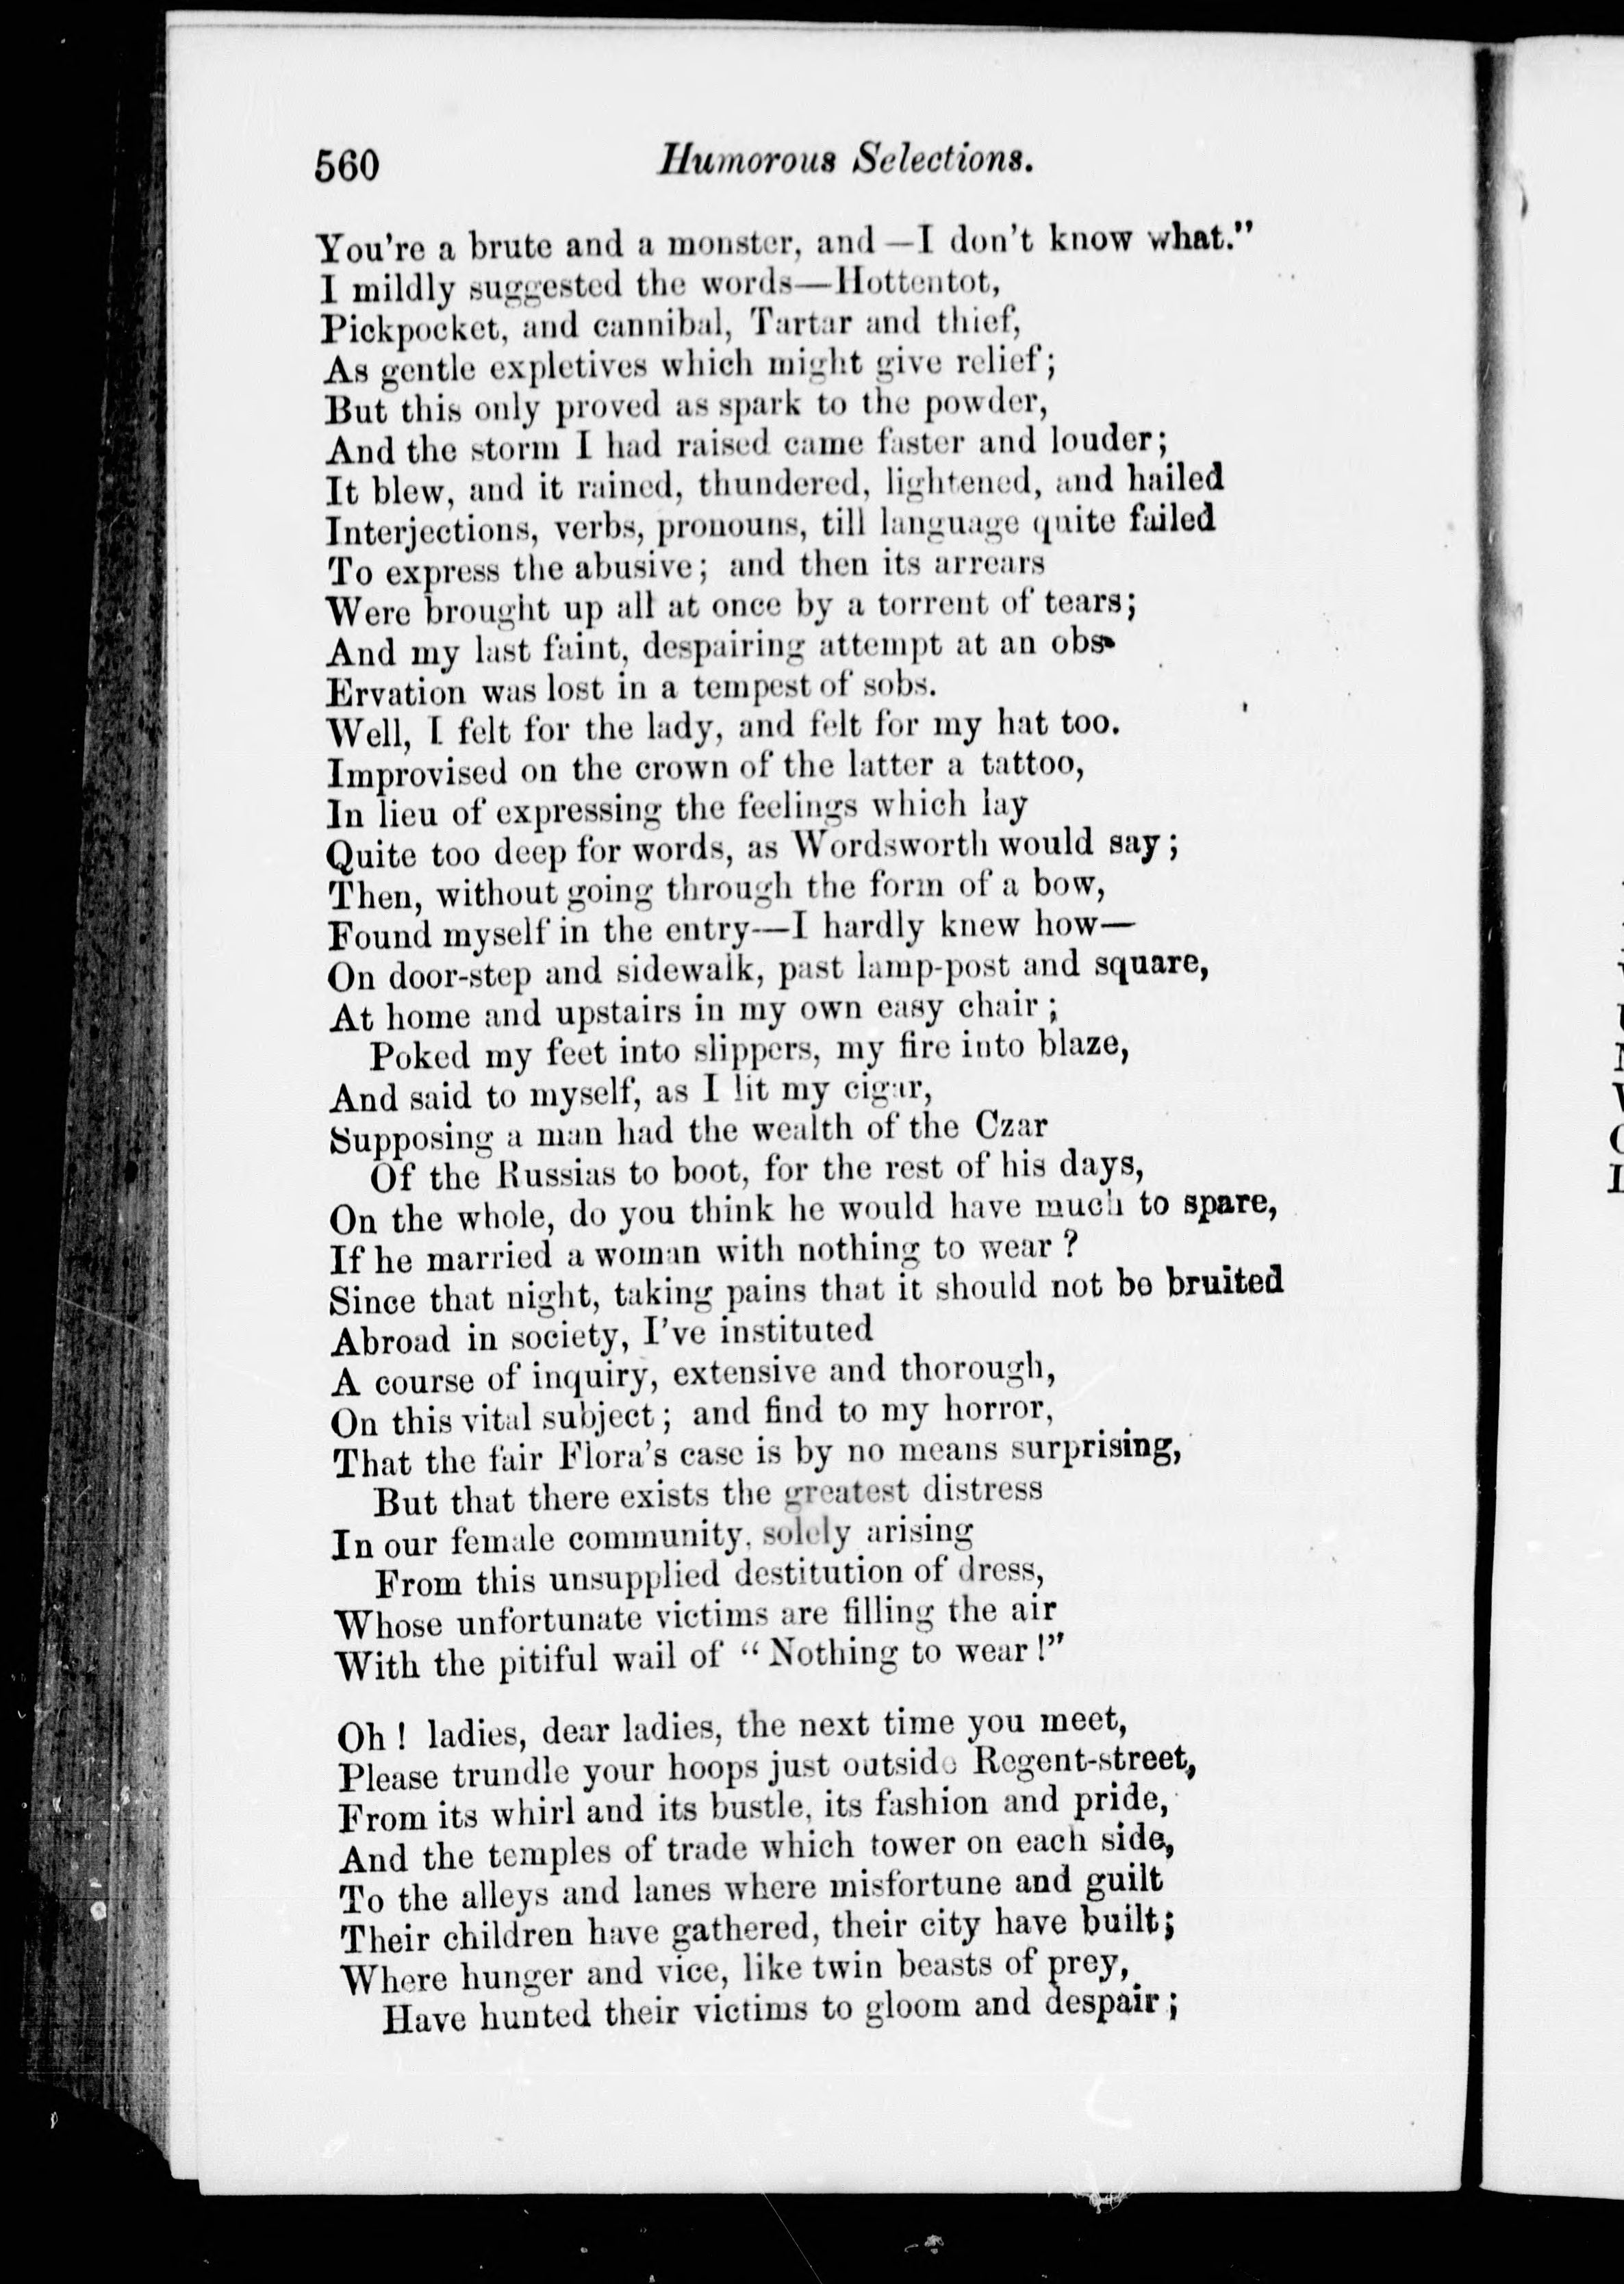 560 Humorous Selections.
You're a brute and a monster, and—I don't know what."
I mildly suggested the words—Hottentot,
Pickpocket, and cannibal, Tartar and thief,
As gentle expletives which might give relief;
But this only proved as spark to the powder,
And the storm I had raised came faster and louder;
It blew, and it rained, thundered, lightened, and hailed
Interjections, verbs, pronouns, till language quite failed
To express the abusive; and then its arrears
Were brought up all at once by a torrent of tears;
And my last faint, despairing attempt at an obs-
Ervation was lost in a tempest of sobs.
Well, I felt for the lady, and felt for my hat too.
Improvised on the crown of the latter a tattoo,
In lieu of expressing the feelings which lay
Quite too deep for words, as Wordsworth would say;
Then, without going through the form of a bow,
Found myself in the entry—I hardly knew how—
On door-step and sidewalk, past lamp-post and square,
At home and upstairs in my own easy chair;
Poked my feet into slippers, my fire into blaze,
And said to myself, as I lit my cigar,
Supposing a man had the wealth of the Czar
Of the Russias to boot, for the rest of his days,
On the whole, do you think he would have much to spare,
If he married a woman with nothing to wear?
Since that night, taking pains that it should not be bruited
Abroad in society, I've instituted
A course of inquiry, extensive and thorough,
On this vital subject; and find to my horror,
That the fair Flora's case is by no means surprising,
But that there exists the greatest distress
In our female community, solely arising
From this unsupplied destitution of dress,
Whose unfortunate victims are filling the air
With the pitiful wail of "Nothing to wear!"
Oh! ladies, dear ladies, the next time you meet,
Please trundle your hoops just outside Regent-street,
From its whirl and its bustle, its fashion and pride,
And the temples of trade which tower on each side,
To the alleys and lanes where misfortune and guilt
Their children have gathered, their city have built;
Where hunger and vice, like twin beasts of prey,
Have hunted their victims to gloom and despair;